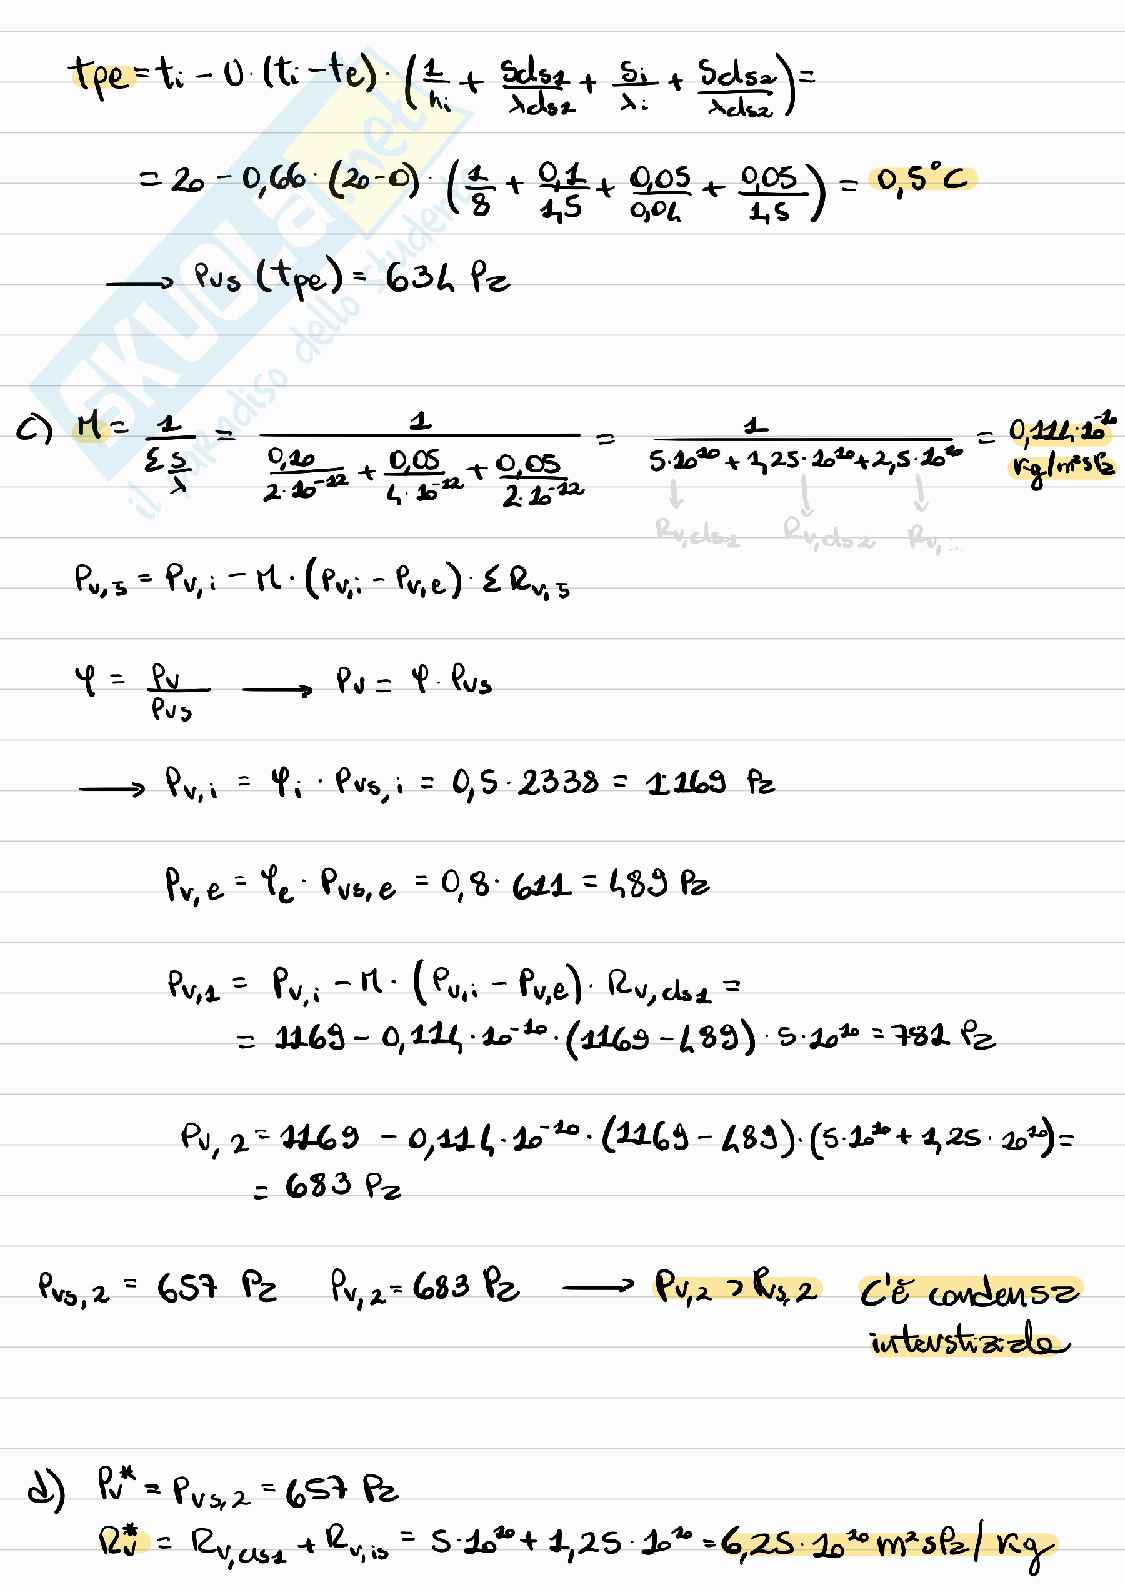 tpe = ti - U · (ti - te) · (1/hi + Scls1/λcls1 + Si/λi + Scls2/λcls2) =
= 20 - 0,66 · (20 - 0) · (1/8 + 0,1/1,5 + 0,05/0,04 + 0,05/1,5) = 0,5°C
→ Pvs (tpe) = 634 Pa
c) M = 1/(Σ s/λ) = 1/(0,10/2·10⁻¹² + 0,05/4·10⁻¹² + 0,05/2·10⁻¹²) = 1/(5·10¹⁰ + 1,25·10¹⁰ + 2,5·10¹⁰) = 0,114·10⁻¹⁰ kg/m²sPa
↓ Rv,cls1 ↓ Rv,cls2 ↓ Rv,...
Pv,s = Pv,i - M · (Pv,i - Pv,e) · Σ Rv,s
φ = Pv/Pvs → Pv = φ · Pvs
→ Pv,i = φi · Pvs,i = 0,5 · 2338 = 1169 Pa
Pv,e = φe · Pvs,e = 0,8 · 611 = 489 Pa
Pv,1 = Pv,i - M · (Pv,i - Pv,e) · Rv,cls1 =
= 1169 - 0,114 · 10⁻¹⁰ · (1169 - 489) · 5·10¹⁰ = 781 Pa
Pv,2 = 1169 - 0,114 · 10⁻¹⁰ · (1169 - 489) · (5·10¹⁰ + 1,25 · 10¹⁰) =
= 683 Pa
Pvs,2 = 657 Pa Pv,2 = 683 Pa → Pv,2 > Pvs,2 C'è condensa
interstiziale
d) Pv* = Pvs,2 = 657 Pa
Rv* = Rv,cls1 + Rv,is = 5·10¹⁰ + 1,25 · 10¹⁰ = 6,25 · 10¹⁰ m²sPa/kg
SKUOLA.net
il paradiso dello studente